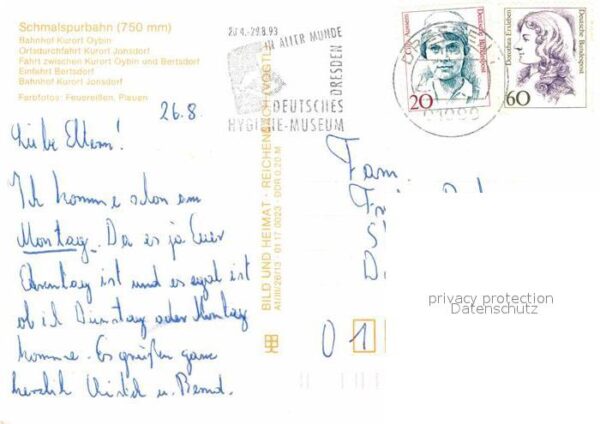 Schmalspurbahn (750 mm)
Bahnhof Kurort Oybin
Ortsdurchfahrt Kurort Jonsdorf
Fahrt zwischen Kurort Oybin und Bertsdorf
Einfahrt Bertsdorf
Bahnhof Kurort Jonsdorf
Farbfotos: Feuereißen, Plauen
26.8.
Liebe Eltern!
Ich komme schon am
Montag. Da es ja Euer
ist und es egal ist
ob ich Dienstag oder Montag
komme. Es grüßen ganz
herzlich u. Bernd.
BILD UND HEIMAT · REICHENBACH (VOGTL)
01 17 0023 · DDR 0,20 M
-29.8.93
IN ALLER MUNDE
DRESDEN
DEUTSCHES
HYGIENE-MUSEUM
Cilly Aussem
Deutsche Bundespost
20
Dorothea Erxleben
Deutsche Bundespost
60
Fam
D
0 1
privacy protection
Datenschutz